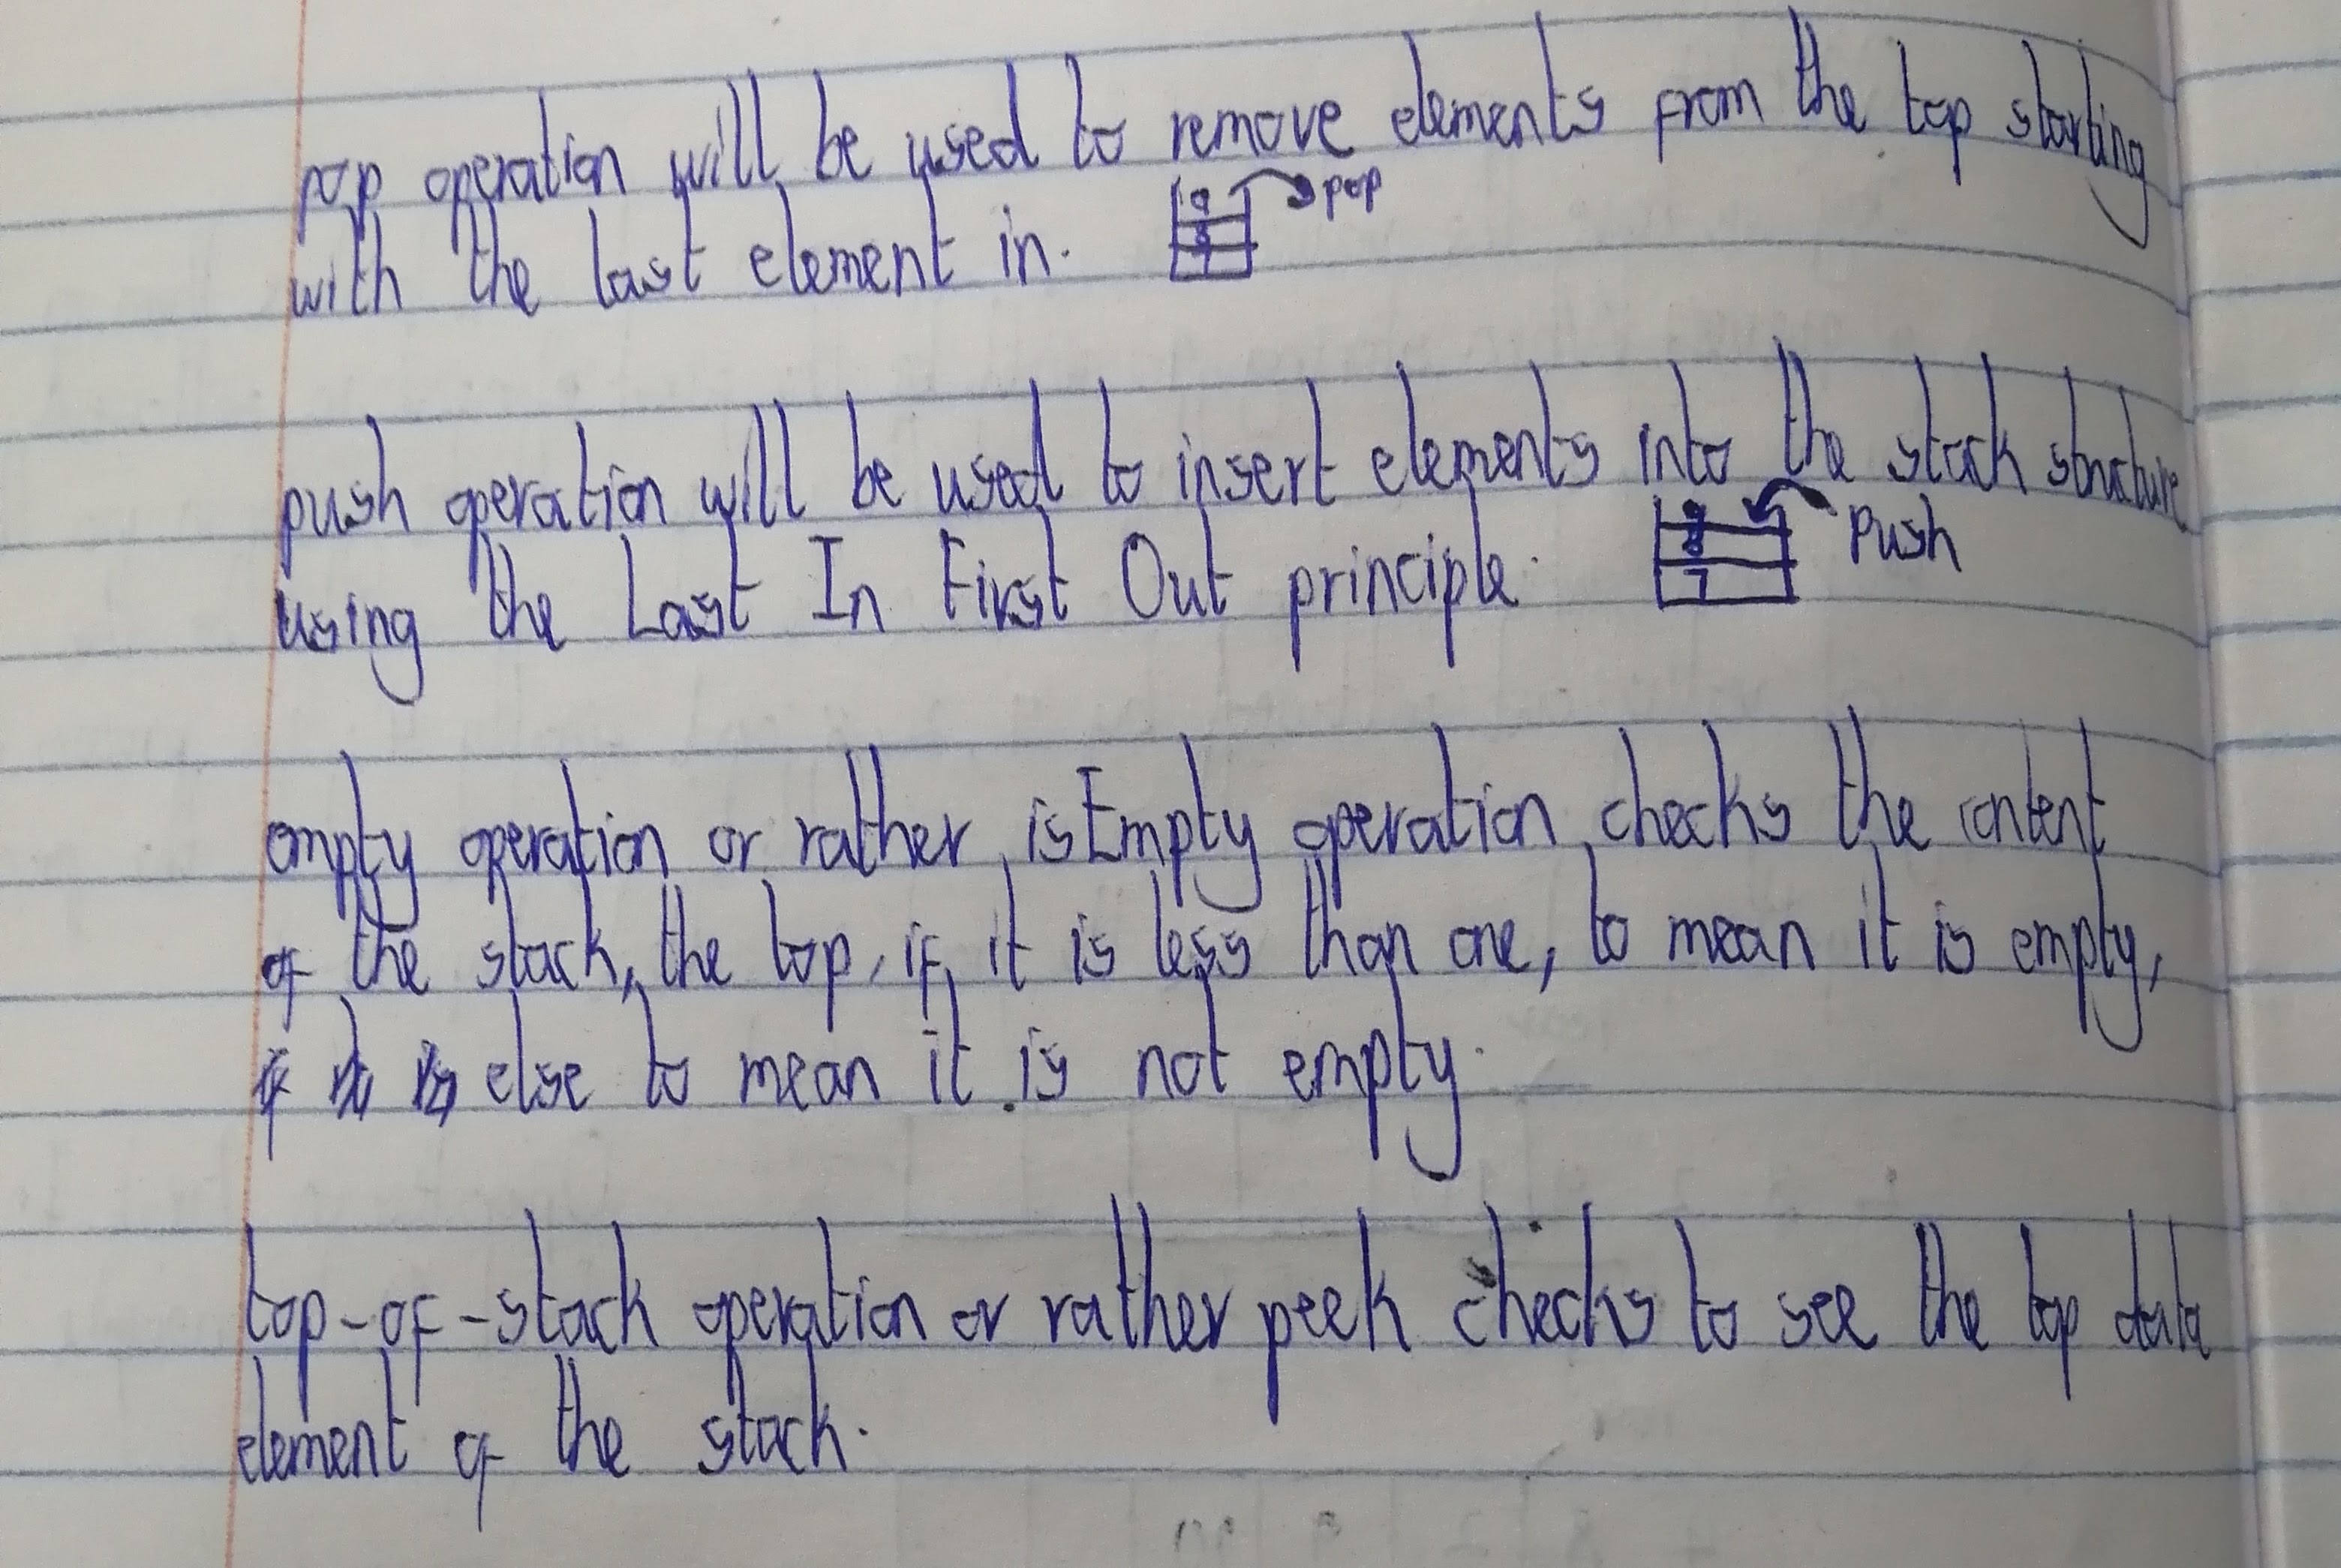 pop operation will be used to remove elements from the top starting
9 pop
8
with the last element in. 7
push operation will be used to insert elements into the stack structure
9
8 Push
using the Last In First Out principle. 7
empty operation or rather isEmpty operation checks the content
of the stack, the top, if it is less than one, to mean it is empty,
else to mean it is not empty.
top-of-stack operation or rather peek checks to see the top data
element of the stack.